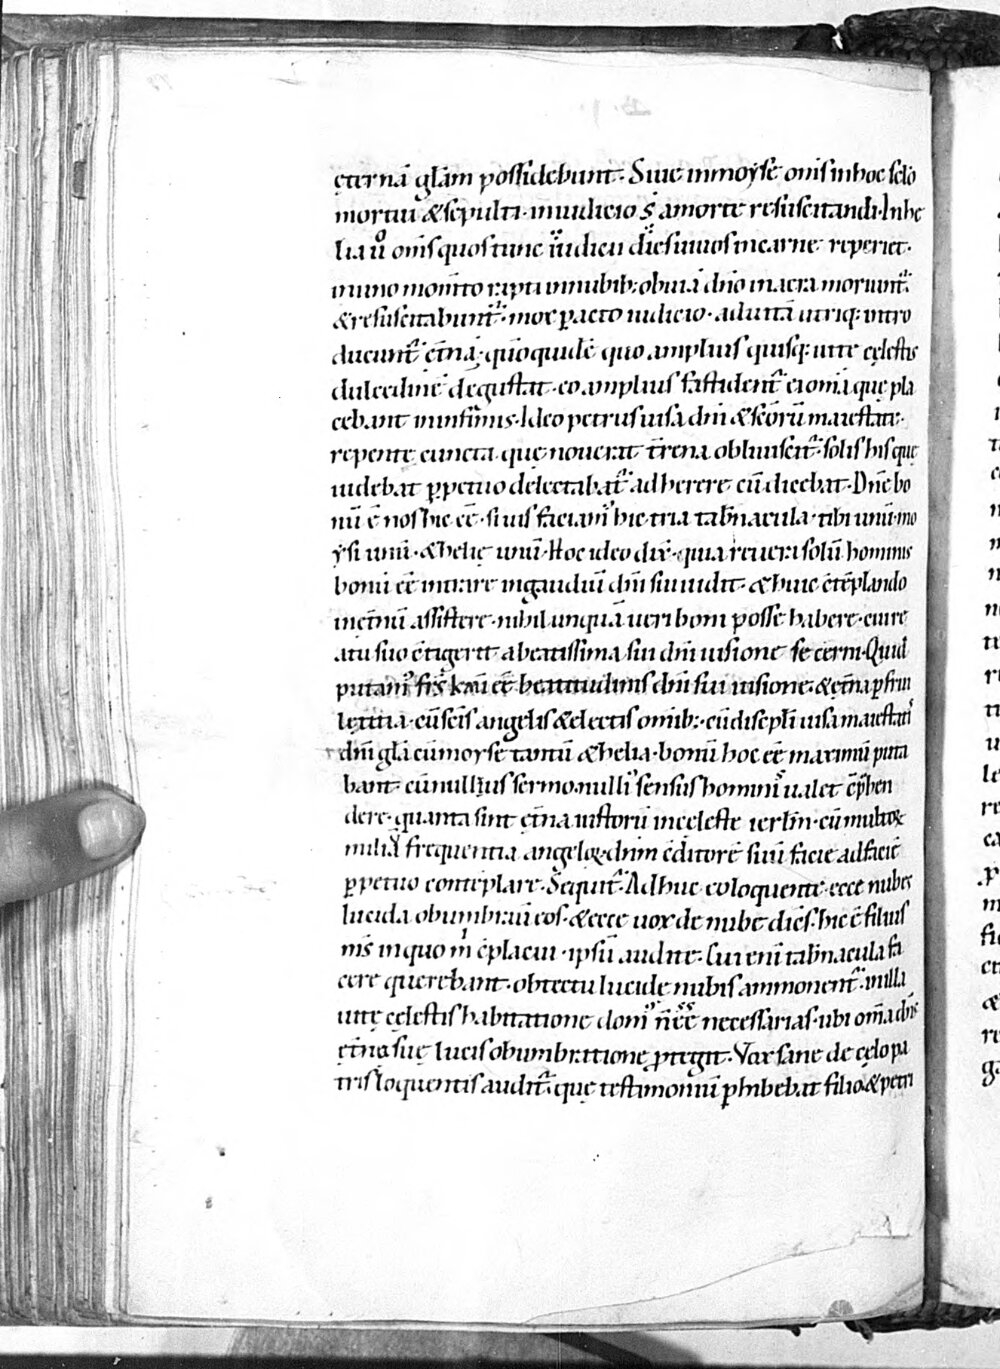 ęternā gl̄am possidebunt. Siue in moẏse om̄s in hoc sc̄lo
mortui & sepulti. in iudicio s̄ a morte resuscitandi. In he
lia ů om̄s quos tunc iudicii dies uiuos in carne reperiet.
in uno momto rapti in nubib; obuiā dn̄o in aera moriunt᷑
& resuscitabunt᷑. mox pacto iudicio. ad uitā utriq; intro
ducunt᷑ ęt̄nā. quō quidē quo amplius quisq; uitę cęlestis
dulcedinē degustat. eo amplius fastident᷑ ei om̄a quę pla
cebant in infimis. Ideo petrus uisa dn̄i & sc̄orū maiestate.
repente cuncta quę nouerat t̄rena obliuiscit᷑. solis his quę
uidebat ꝑpetuo delectabat᷑ adherere cū dicebat. Dn̄e bo
nū ē nos hic eē. si uis faciam᷒ hic tria tab̄nacula. tibi unū. mo
ẏsi unū. & helię unū. Hoc ideo dix̄. quia reuera solū hominis
bonū eē intrare in gaudiū dn̄i sui uidit. & huic c̄tēplando
in et̄nū assistere. nihil unquā ueri boni posse habere. cui re
atu suo c̄tigerit a beatissima sui dn̄i uisione secerni. Quid
putam᷒ fr̄s k̄mi eē beatitudinis dn̄i sui uisione. & ęt̄na ꝑfrui
lętitia. cū sc̄is angelis & electis om̄ib;. cū discipl̄i uisa maiestati
dn̄i gl̄a cū moyse tantū & helia. bonū hoc eē maximū puta
bant. cū nullius sermo. nulli᷒ sensus hominū ualet c̄p̄hen
dere. quanta sint ęt̄na iustorū in celeste ierl̄m. cū multoꝝ
miliū frequentia angeloꝝ. dn̄m c̄ditorē suū facie ad faciē
ꝑpetuo conteplare. Sequit᷑. Adhuc eo loquente. ecce nubes
lucida obumbrauit eos. & ecce uox de nube dic̄s. hic ē filius
m̄s in quo m̄ c̄placui. ipsū audite. Cui enī tab̄nacula fa
cere querebant. obtectu lucide nubis ammonent᷑. in illa
uitę cęlestis habitatione dom᷒ n̄ eē necessarias. ubi om̄a dn̄s
ęt̄na suę lucis obumbratione ꝓtegit. Vox sane de cęlo pa
tris loquentis audit᷑. quę testimoniū phibebat filio. & petri